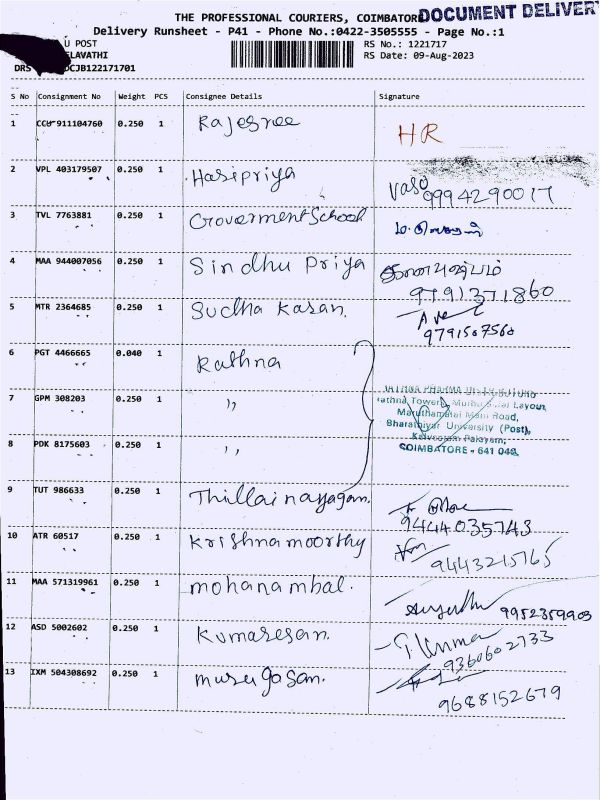 THE PROFESSIONAL COURIERS, COIMBATORE
DOCUMENT DELIVER
Delivery Runsheet - P41 - Phone No.:0422-3505555 - Page No.:1
U POST
RS No.: 1221717
ELAVATHI
RS Date: 09-Aug-2023
DRS CJB122171701
S No Consignment No Weight PCS Consignee Details Signature
1 CCU 911104760 0.250 1 Rajesree HR
2 VPL 403179507 0.250 1 Haripriya Vaso 9994290017
3 TVL 7763881 0.250 1 Groverment School
4 MAA 944007056 0.250 1 Sindhu Priya 9791371860
5 MTR 2364685 0.250 1 Sudha Kasan. 9791507560
6 PGT 4466665 0.040 1 Rathna
7 GPM 308203 0.250 1 ,,
8 PDK 8175603 0.250 1 ,,
RATHNA PHARMA DISTRIBUTORS
Rathna Towers, Layout,
Maruthamalai Main Road,
Bharathiyar University (Post),
Kalveerampalayam,
COIMBATORE - 641 046.
9 TUT 986633 0.250 1 Thillainayagam. 9444035743
10 ATR 60517 0.250 1 Krishnamoorthy 9443215765
11 MAA 571319961 0.250 1 mohanambal. 9952359903
12 ASD 5002602 0.250 1 Kumaresan. 9360602733
13 IXM 504308692 0.250 1 murugasan. 9688152679